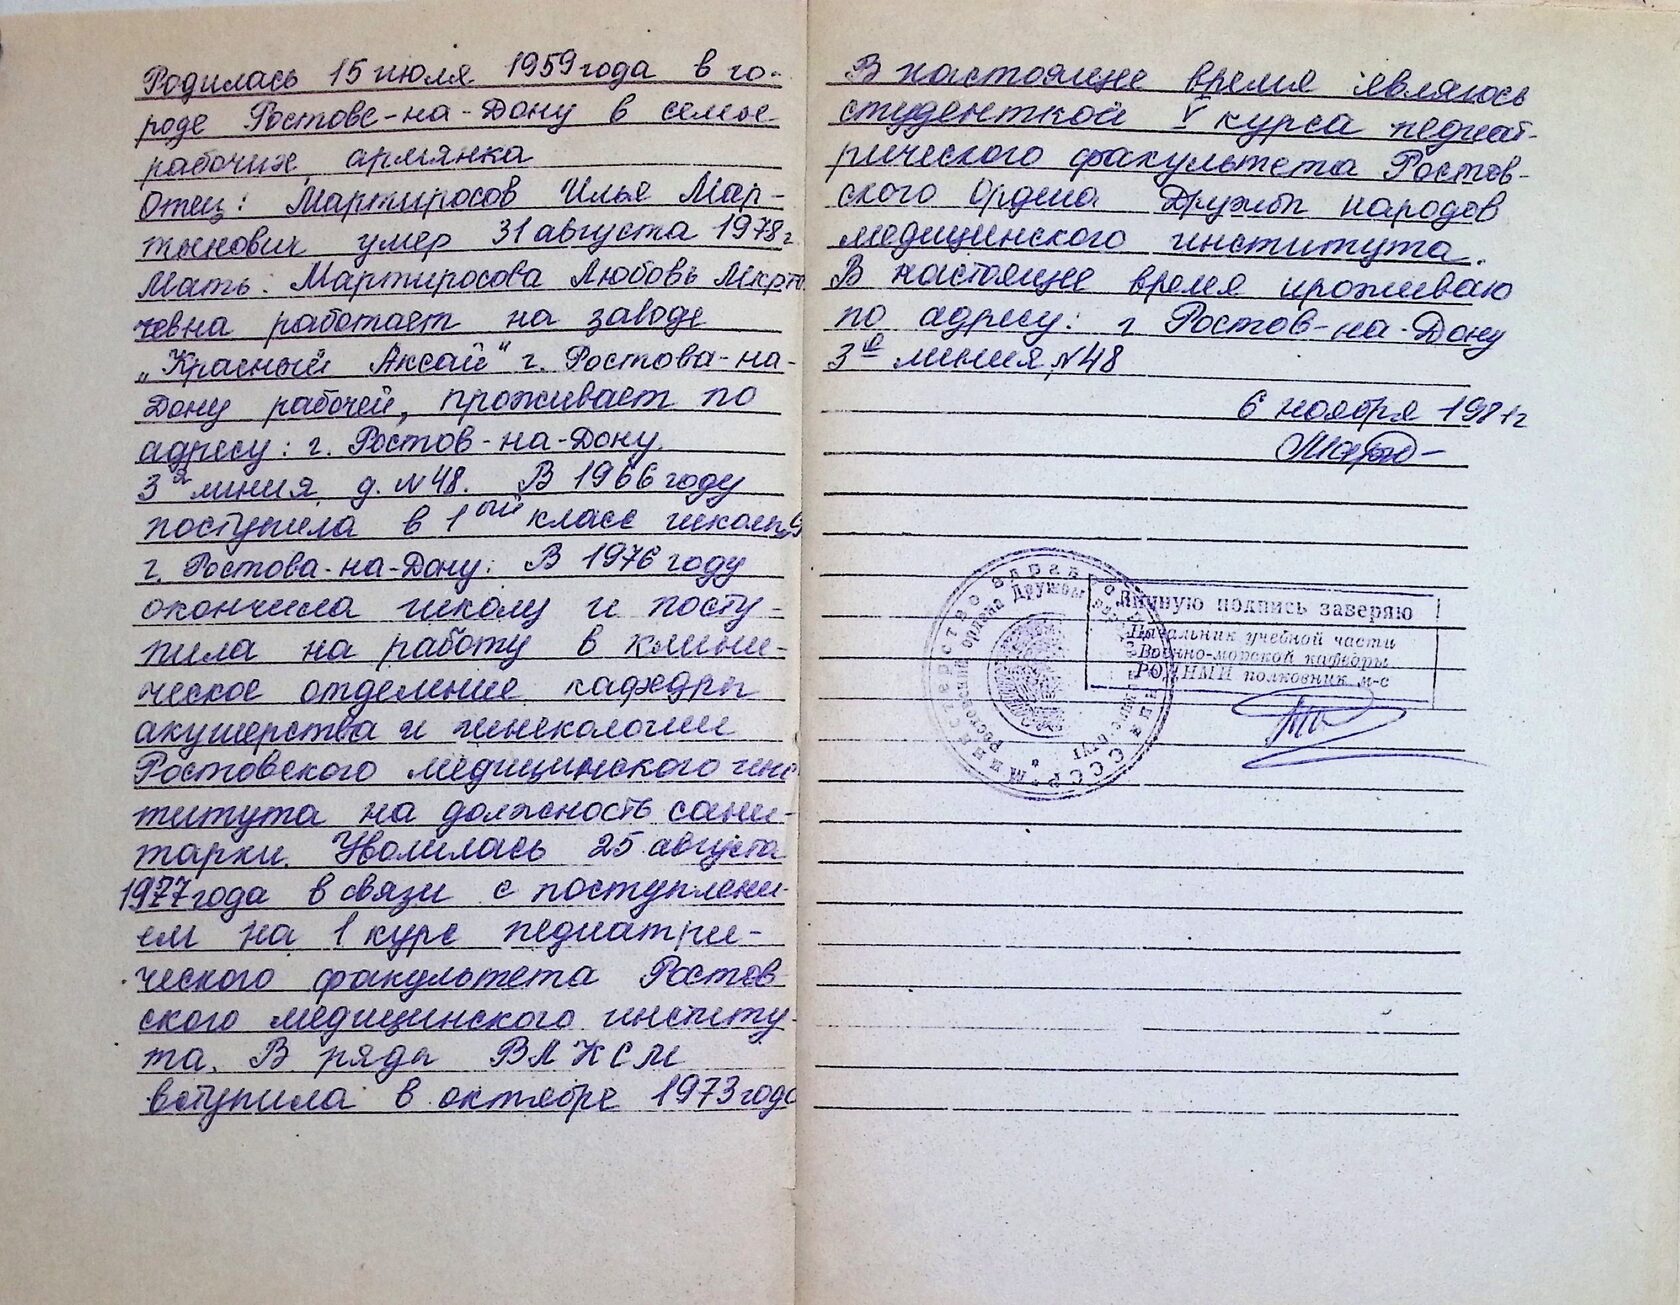 Родилась 15 июля 1959 года в го-
роде Ростове-на-Дону в семье
рабочих, армянка
Отец: Мартиросов Илья Мар-
тынович умер 31 августа 1978 г.
Мать. Мартиросова Любовь Мкрты-
човна работает на заводе
„Красный Аксай" г. Ростова-на-
Дону рабочей, проживает по
адресу: г. Ростов-на-Дону
3я линия д. N 48. В 1966 году
поступила в 1ый класс школы
г. Ростова-на-Дону. В 1976 году
окончила школу и посту-
пила на работу в клини-
ческое отделение кафедры
акушерства и гинекологии
Ростовского медицинского инс
титута на должность сани-
тарки. Уволилась 25 августа
1977 года в связи с поступлени-
ем на 1 курс педиатри-
ческого факультета Ростов-
ского медицинского институ-
та. В ряды ВЛКСМ
вступила в октябре 1973 года
В настоящее время являюсь
студенткой V курса педиат-
рического факультета Ростов-
ского Ордена Дружбы народов
медицинского института.
В настоящее время проживаю
по адресу: г Ростов-на-Дону
3я линия, N 48
6 ноября 1981 г
Личную подпись заверяю
Начальник учебной части
Военно-морской кафедры
РОДНМИ полковник м-с
Министерство здравоохранения СССР
Ростовский ордена Дружбы народов